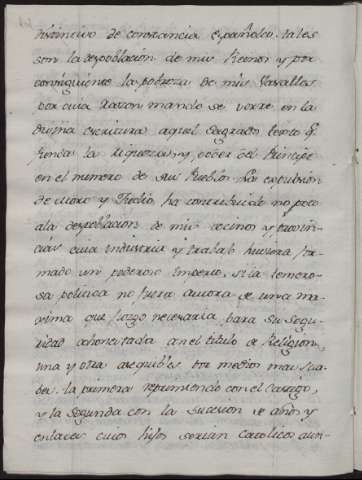 distintivo de constancia españoles: tales
son la despoblacion de mis Reinos y por
consiguiente la pobreza de mis Vasallos
por cuia razon mando se borre en la
Divina escritura aquel Sagrado texto q.
Renda la riqueza, y poder del Principe
en el numero de sus Pueblos. La expulsion
de Moro y Judio, ha contribuido no poco
ala despoblacion de mis reinos y provin-
cias cuia industria y trabajo huviera for-
mado un poderoso Imperio, si la temero-
sa politica no fuera autora de una ma-
xima que juzgo necesaria para su segu-
ridad ahonestada con el titulo de Religion,
una y otra asequibles por medios mas sua-
bes. la primera reprimiendo con el Castigo,
y la Segunda con la sucesion de años y
enlaces cuios hijos serian catolicos aun-